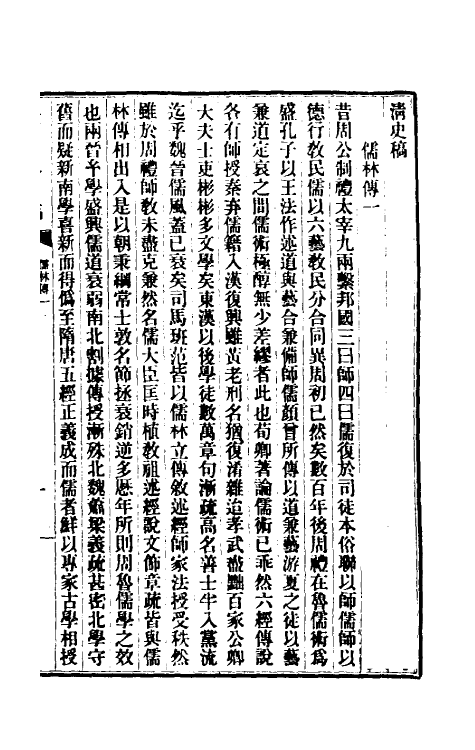 清史稿
儒林傳一
昔周公制禮太宰九兩繫邦國三曰師四曰儒復於司徒本俗聯以師儒師以
德行敎民儒以六藝敎民分合同異周初已然矣數百年後周禮在魯儒術爲
盛孔子以王法作述道與藝合兼備師儒顔曾所傳以道兼藝游夏之徒以藝
兼道定哀之間儒術極醇無少差繆者此也荀卿著論儒術已乖然六經傳說
各有師授秦弃儒籍入漢復興雖黃老刑名猶復淆雜迨孝武盡黜百家公卿
大夫士吏彬彬多文學矣東漢以後學徒數萬章句漸疏高名善士半入黨流
迄乎魏晉儒風蓋已衰矣司馬班范皆以儒林立傳敘述經師家法授受秩然
雖於周禮師敎未盡克兼然名儒大臣匡時植敎祖述經說文飾章疏皆與儒
林傳相出入是以朝秉綱常士敦名節拯衰銷逆多歷年所則周魯儒學之效
也兩晉玄學盛興儒道衰弱南北割據傳授漸殊北魏蕭梁義疏甚密北學守
舊而疑新南學喜新而得僞至隋唐五經正義成而儒者鮮以專家古學相授
儒林傳一
一